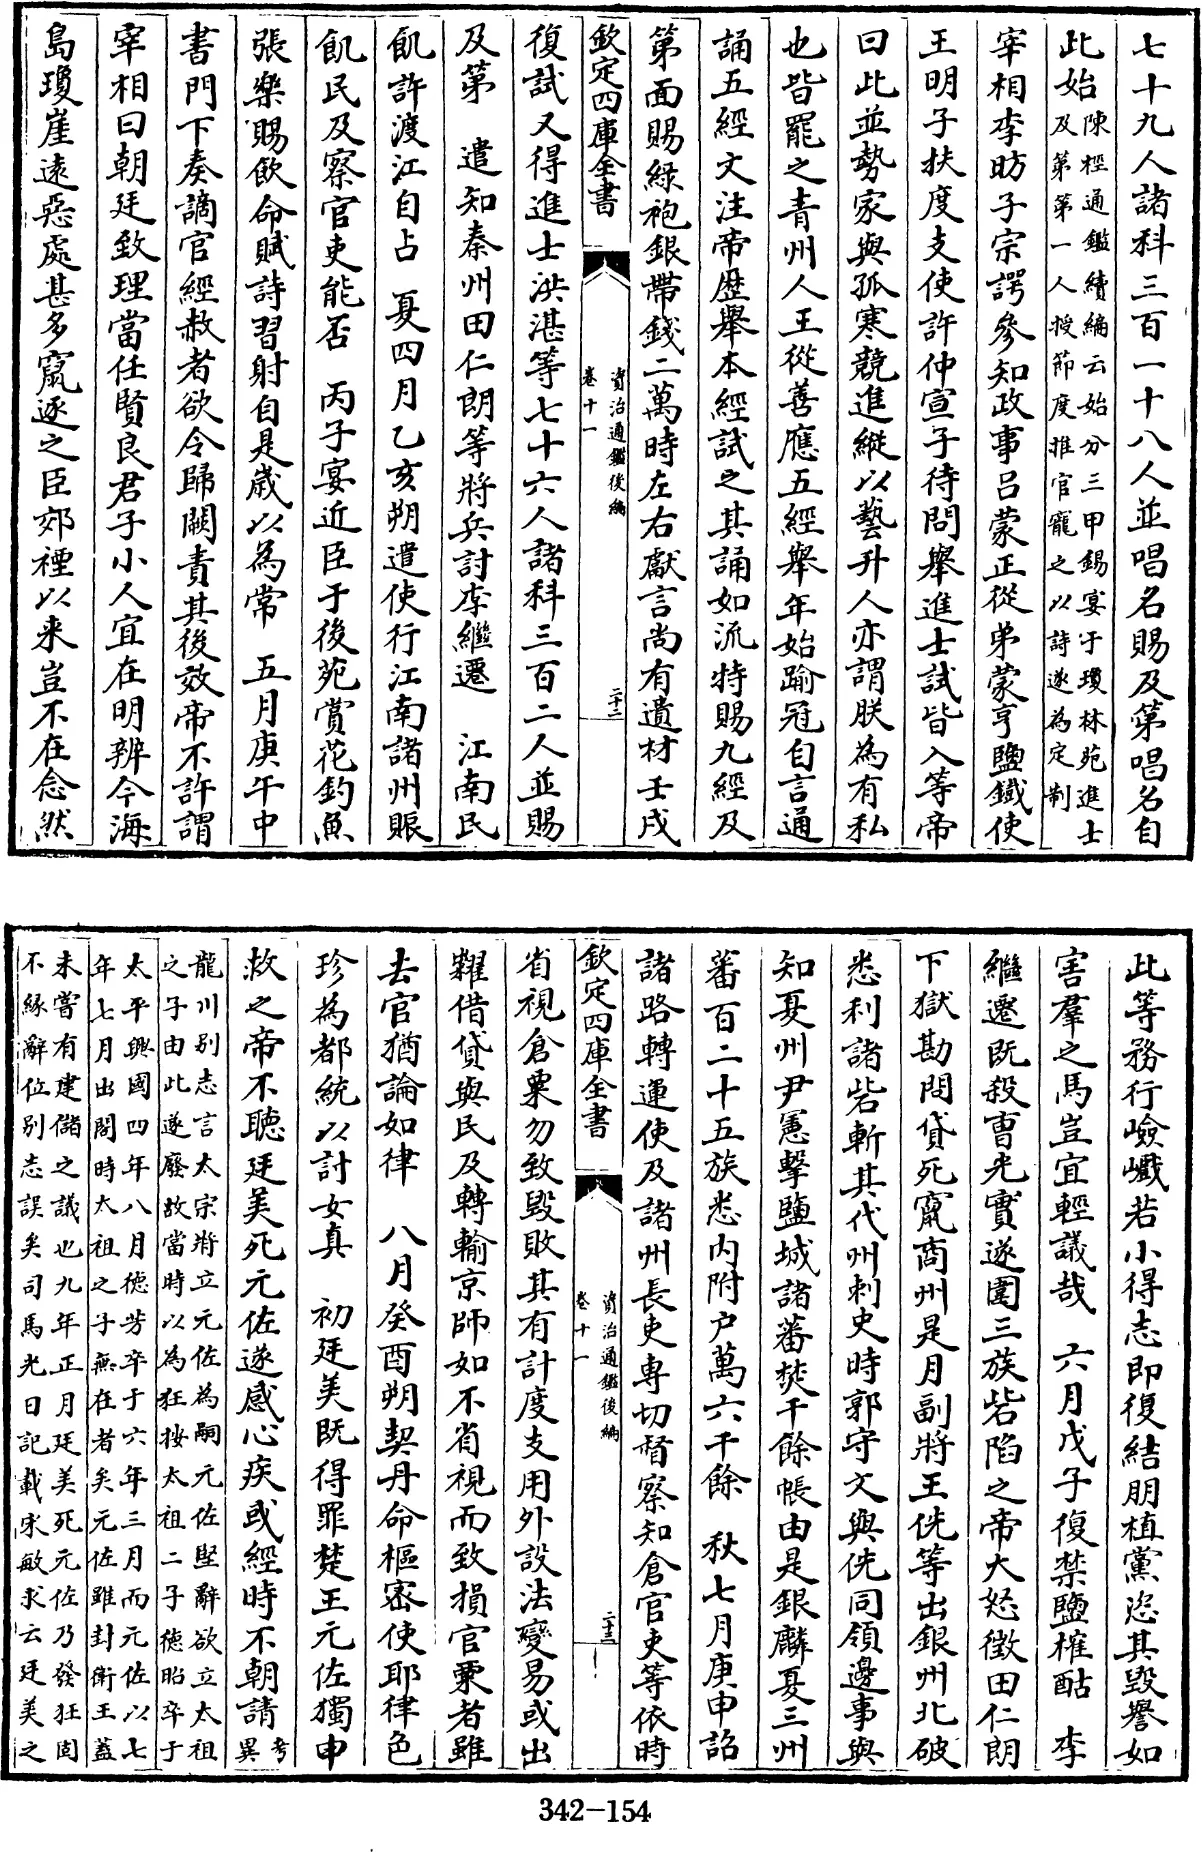 七十九人諸科三百一十八人並唱名賜及第唱名自
此始陳桱通鑑續編云始分三甲錫宴于瓊林苑進士
及第第一人授節度推官寵之以詩遂為定制
宰相李昉子宗諤參知政事呂蒙正從弟蒙亨鹽鐵使
王明子扶度支使許仲宣子待問舉進士試皆入等帝
曰此並勢家與孤寒競進縱以藝升人亦謂朕為有私
也皆罷之青州人王從善應五經舉年始踰冠自言通
誦五經文注帝歷舉本經試之其誦如流特賜九經及
第面賜綠袍銀帶錢二萬時左右獻言尚有遺材壬戌
欽定四庫全書
資治通鑑後編
卷十一
二十二
復試又得進士洪湛等七十六人諸科三百二人並賜
及第　遣知秦州田仁朗等將兵討李繼遷　江南民
飢許渡江自占　夏四月乙亥朔遣使行江南諸州賑
飢民及察官吏能否　丙子宴近臣于後苑賞花釣魚
張樂賜飲命賦詩習射自是歲以為常　五月庚午中
書門下奏謫官經赦者欲令歸闕責其後效帝不許謂
宰相曰朝廷致理當任賢良君子小人宜在明辨今海
島瓊崖遠惡處甚多竄逐之臣郊禋以来豈不在念然
此等務行嶮巇若小得志即復結朋植黨恣其毀譽如
害羣之馬豈宜輕議哉　六月戊子復禁鹽榷酤　李
繼遷既殺曹光實遂圍三族砦陷之帝大怒徵田仁朗
下獄勘問貸死竄商州是月副將王侁等出銀州北破
悉利諸砦斬其代州刺史時郭守文與侁同領邊事與
知夏州尹憲擊鹽城諸蕃焚千餘帳由是銀麟夏三州
蕃百二十五族悉内附户萬六千餘　秋七月庚申詔
諸路轉運使及諸州長吏專切督察知倉官吏等依時
欽定四庫全書
資治通鑑後編
卷十一
二十三
省視倉粟勿致毀敗其有計度支用外設法變易或出
糶借貸與民及轉輸京師如不省視而致損官粟者雖
去官猶論如律　八月癸酉朔契丹命樞密使耶律色
珍為都統以討女真　初廷美既得罪楚王元佐獨申
救之帝不聽廷美死元佐遂感心疾或經時不朝請考
異
龍川別志言太宗將立元佐為嗣元佐堅辭欲立太祖
之子由此遂廢故當時以為狂按太祖二子德昭卒于
太平興國四年八月德芳卒于六年三月而元佐以七
年七月出閤時太祖之子無在者矣元佐雖封衛王蓋
未嘗有建儲之議也九年正月廷美死元佐乃發狂固
不緣辭位別志誤矣司馬光日記載宋敏求云廷美之
342-154